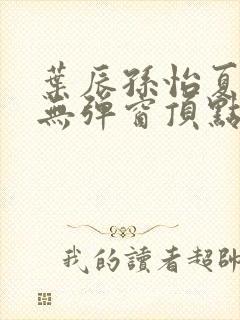 葉辰孫怡夏
無彈窗頂點
我的讀者超帥